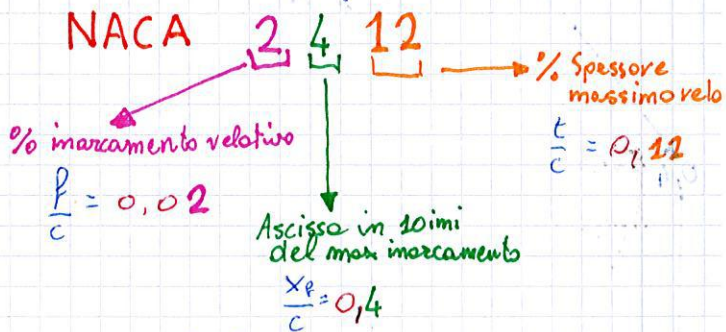 NACA 2 4 12
% Spessore
massimo relo
% inarcamento relativo
t/c = 0,12
f/c = 0,02
Ascissa in 10imi
del max inarcamento
xf/c = 0,4